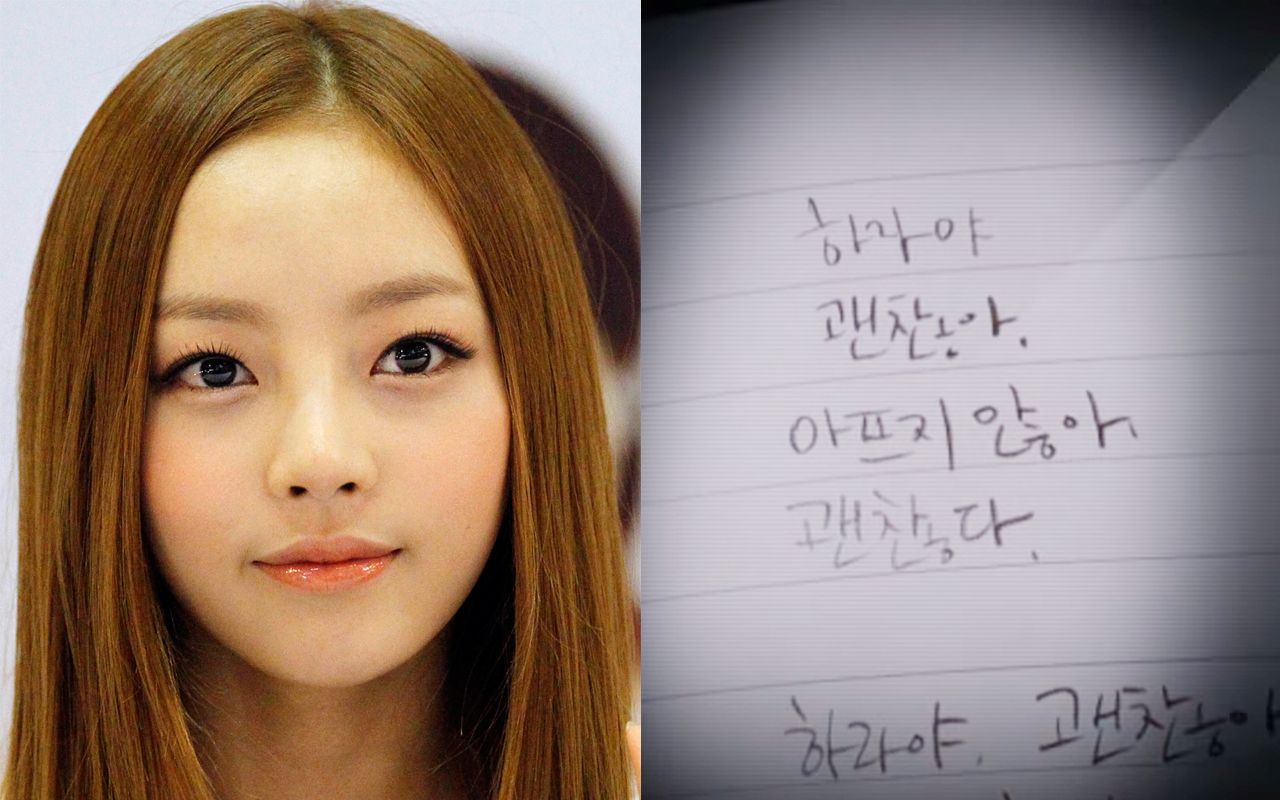 하라야
괜찮아.
아프지 않아.
괜찮다.
하라야. 괜찮아